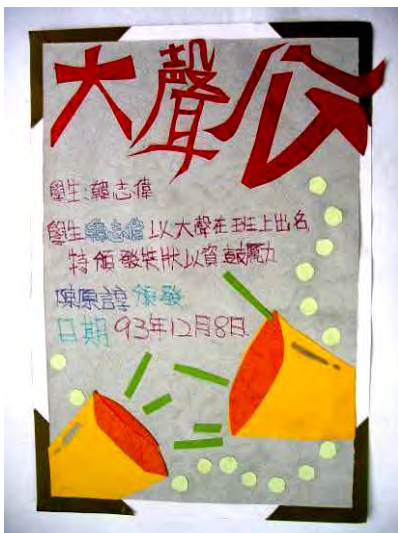 大聲公
學生:韓志偉
學生韓志偉以大聲在班上出名
特頒發獎狀以資鼓勵
陳原諄頒發
日期 93年12月8日